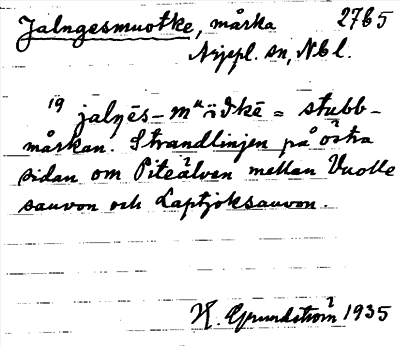 Jalngesmuotke, mårka 2765
Arjepl. sn, Nbl.
19 jalŋēs-mᵘȯðkē = stubb-
mårkan. Strandlinjen på östra
sidan om Piteälven mellan Vuolle
sauvon och Laptjoksauvon.
H. Grundström 1935